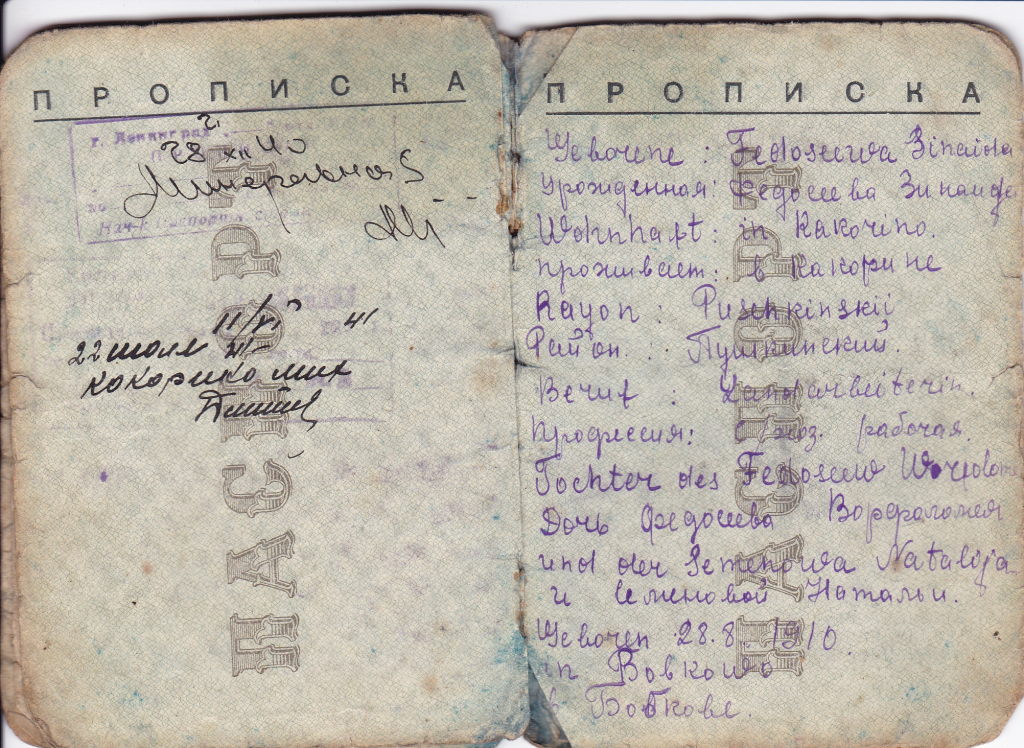 ПРОПИСКА
г. Ленинград
28 XII 40
Минеральная 5
11/VI 41
22 июля 41
кокорино мих
ПАСПОРТ
ПРОПИСКА
Geborene : Fedoseewa Zinaida
Урожденная: Федосеева Зинаида
Wohnhaft: in Kakorino.
проживает: в Какорине
Rayon : Puschkinskii
Район : Пушкинский.
Beruf : Landarbeiterin.
Профессия: с/хоз. рабочая.
Tochter des Fedoseew Worfolom
Дочь Федосеева Ворфоломея
und der Semenowa Natalija
и Семеновой Натальи.
Geboren 28.8.1910.
in Bobkowo
в Бобкове.
ПАСПОРТ